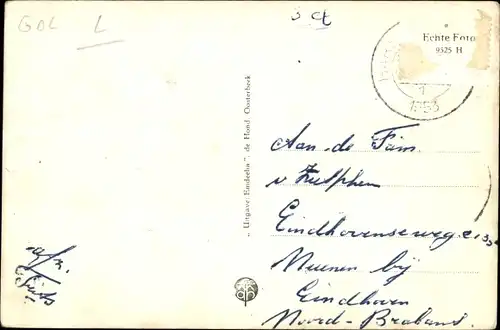 GDL L
3 ct
Echte Foto
9325 H
1
1953
„Uitgave: Emdeeha”, de Hond Oosterbeek
Aan de Fam.
v Zutphen
Eindhovenseweg
Nuenen bij
Eindhoven
Noord-Brabant
afz.
Frits